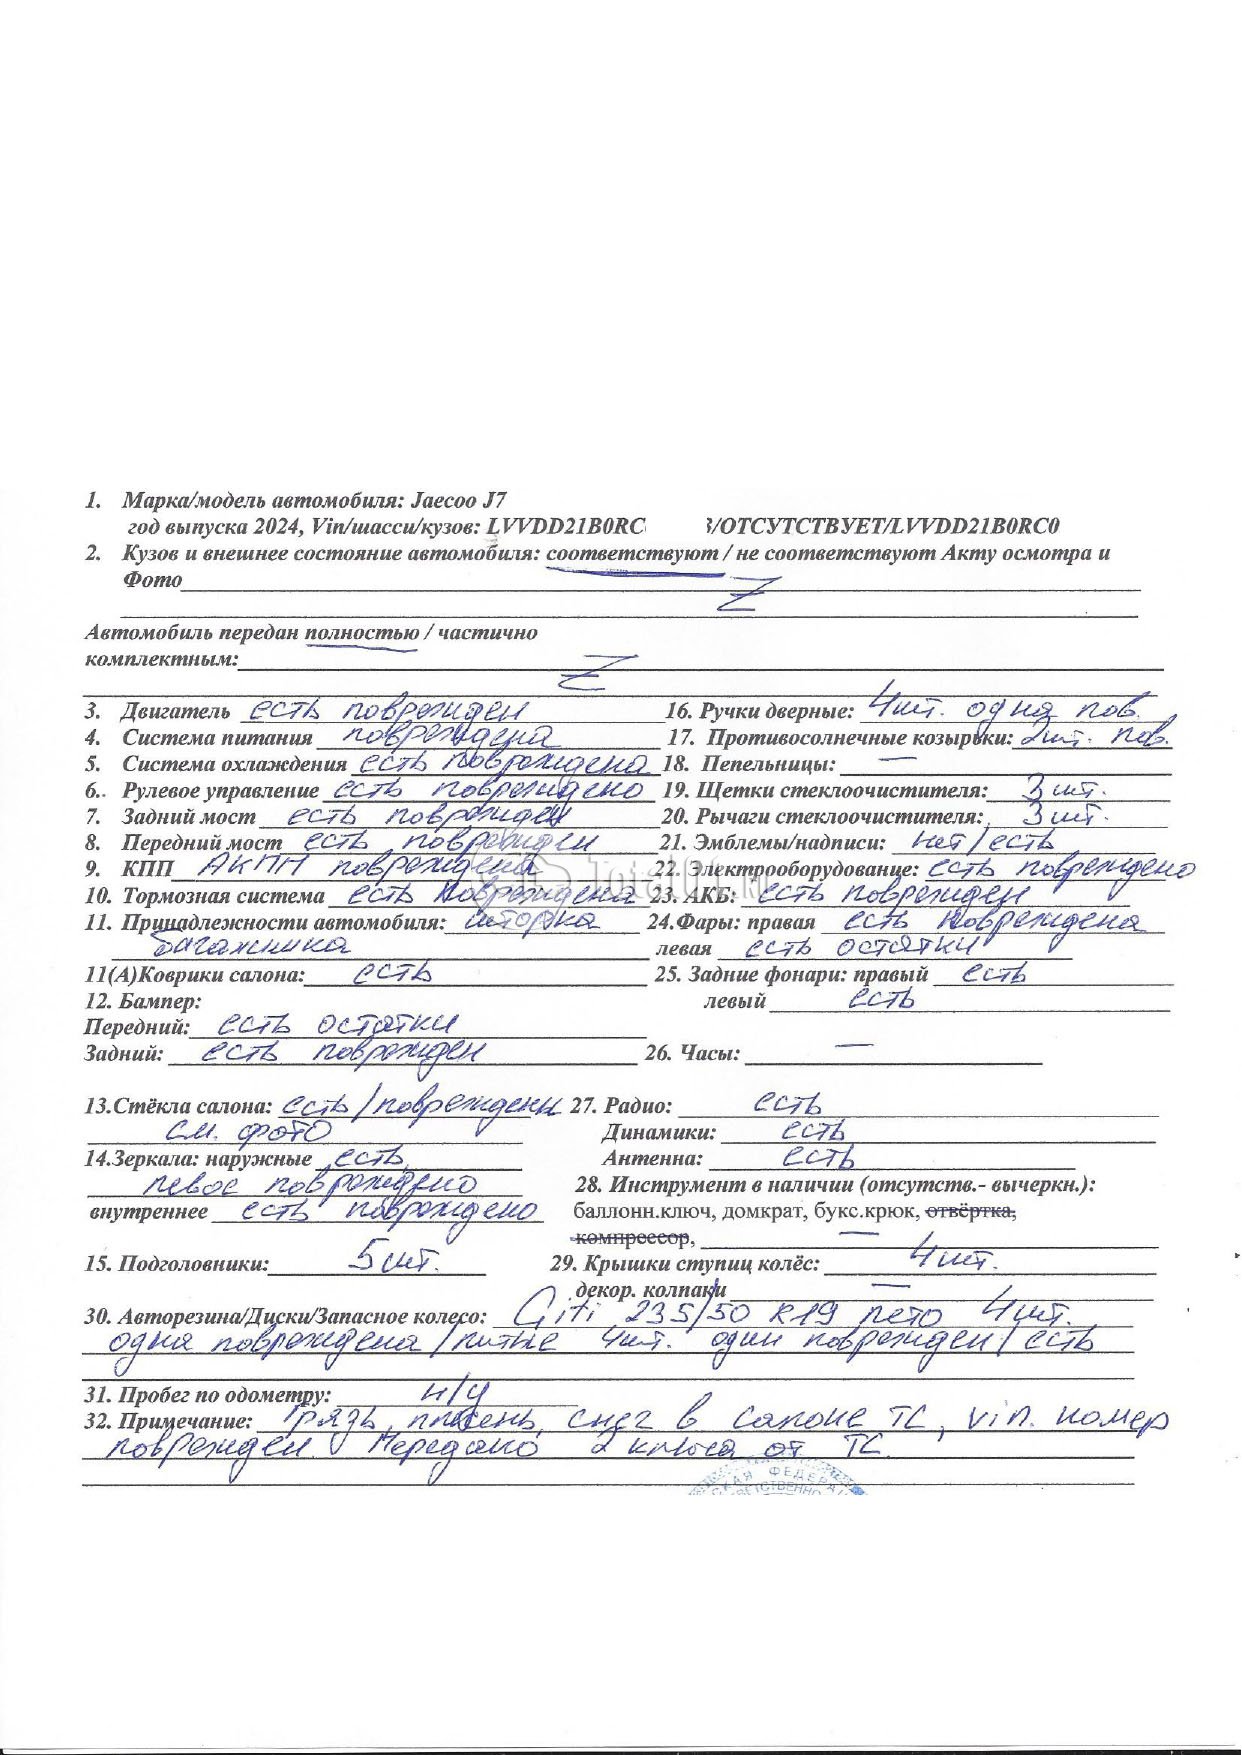 1. Марка/модель автомобиля: Jaecoo J7
год выпуска 2024, Vin/шасси/кузов: LVVDD21B0RC /ОТСУТСТВУЕТ/LVVDD21B0RC0
2. Кузов и внешнее состояние автомобиля: соответствуют / не соответствуют Акту осмотра и
Фото
Z
Автомобиль передан полностью / частично
комплектным:
Z
3. Двигатель есть поврежден 16. Ручки дверные: 4шт. одна пов.
4. Система питания повреждена 17. Противосолнечные козырьки: 2шт. пов.
5. Система охлаждения есть повреждена 18. Пепельницы: —
6. Рулевое управление есть повреждено 19. Щетки стеклоочистителя: 3 шт.
7. Задний мост есть поврежден 20. Рычаги стеклоочистителя: 3 шт.
8. Передний мост есть поврежден 21. Эмблемы/надписи: нет/есть
9. КПП АКПП повреждена 22. Электрооборудование: есть повреждено
Total01.ru
10. Тормозная система есть повреждена 23. АКБ: есть поврежден
11. Принадлежности автомобиля: шторка 24.Фары: правая есть повреждена
багажника левая есть остатки
11(А)Коврики салона: есть 25. Задние фонари: правый есть
12. Бампер: левый есть
Передний: есть остатки
Задний: есть поврежден 26. Часы: —
13.Стёкла салона: есть/повреждены 27. Радио: есть
см. фото Динамики: есть
14.Зеркала: наружные есть Антенна: есть
левое повреждено 28. Инструмент в наличии (отсутств.- вычеркн.):
внутреннее есть повреждено баллонн.ключ, домкрат, букс.крюк, отвёртка,
компрессор, —
15. Подголовники: 5 шт. 29. Крышки ступиц колёс: 4 шт.
декор. колпаки —
30. Авторезина/Диски/Запасное колесо: Giti 235/50 R19 лето 4шт.
одна повреждена /литые 4шт. один поврежден/ есть
31. Пробег по одометру: н/у
32. Примечание: Грязь, плесень, снег в салоне ТС, Vin. номер
поврежден. Передано 2 ключа от ТС.
СКАЯ ФЕДЕРА
ВЕТСТВЕННО